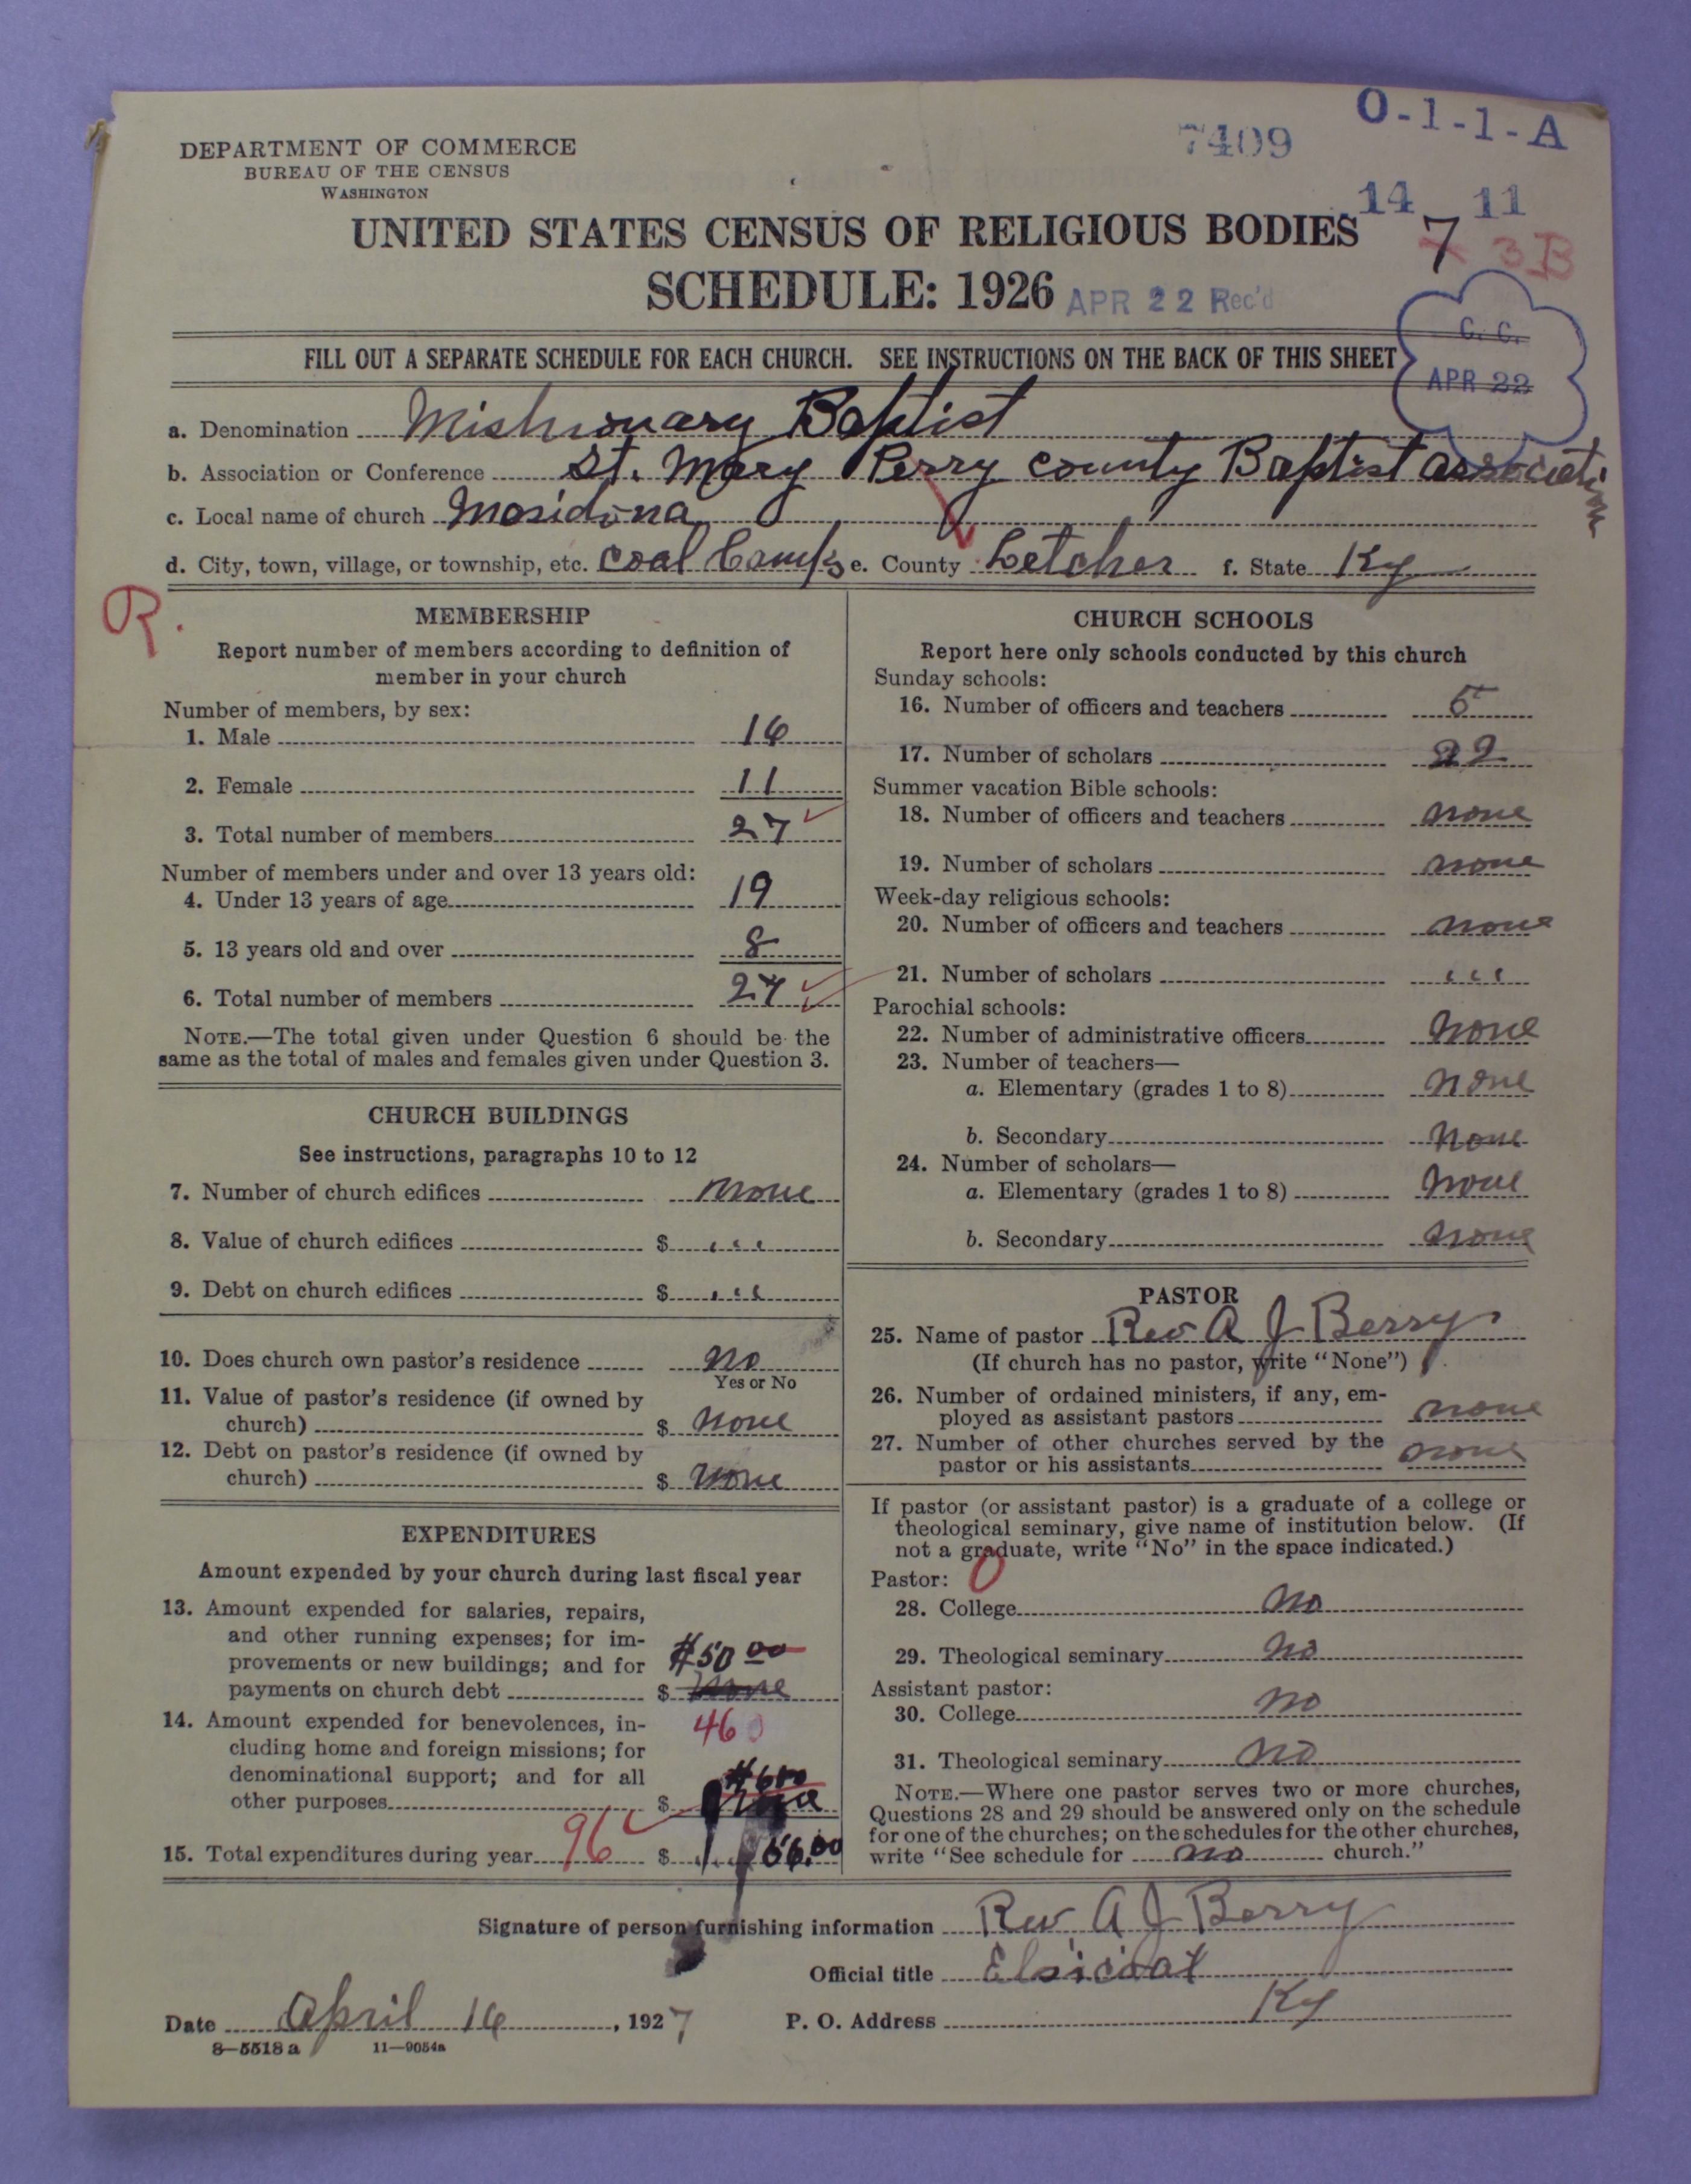 DEPARTMENT OF COMMERCE
BUREAU OF THE CENSUS
WASHINGTON
7409
O-1-1-A
14 11
7 3B
UNITED STATES CENSUS OF RELIGIOUS BODIES
SCHEDULE: 1926
APR 22 Rec'd
C. C.
APR 22
FILL OUT A SEPARATE SCHEDULE FOR EACH CHURCH. SEE INSTRUCTIONS ON THE BACK OF THIS SHEET
a. Denomination Mishionary Baptist
b. Association or Conference St. Mary Perry county Baptist association
c. Local name of church
d. City, town, village, or township, etc. Coal Camps e. County Letcher f. State Ky
R.
MEMBERSHIP
Report number of members according to definition of
member in your church
Number of members, by sex:
1. Male 16
2. Female 11
3. Total number of members 27
Number of members under and over 13 years old:
4. Under 13 years of age 19
5. 13 years old and over 8
6. Total number of members 27
NOTE.—The total given under Question 6 should be the
same as the total of males and females given under Question 3.
CHURCH BUILDINGS
See instructions, paragraphs 10 to 12
7. Number of church edifices none
8. Value of church edifices $ " "
9. Debt on church edifices $ " "
10. Does church own pastor's residence no
Yes or No
11. Value of pastor's residence (if owned by
church) $ none
12. Debt on pastor's residence (if owned by
church) $ none
EXPENDITURES
Amount expended by your church during last fiscal year
13. Amount expended for salaries, repairs,
and other running expenses; for im-
provements or new buildings; and for $50 00
payments on church debt $ none
14. Amount expended for benevolences, in- 46
cluding home and foreign missions; for
denominational support; and for all
other purposes $
15. Total expenditures during year 96 $ 56.00
CHURCH SCHOOLS
Report here only schools conducted by this church
Sunday schools:
16. Number of officers and teachers 5
17. Number of scholars 22
Summer vacation Bible schools:
18. Number of officers and teachers none
19. Number of scholars none
Week-day religious schools:
20. Number of officers and teachers none
21. Number of scholars " "
Parochial schools:
22. Number of administrative officers none
23. Number of teachers—
a. Elementary (grades 1 to 8) none
b. Secondary none
24. Number of scholars—
a. Elementary (grades 1 to 8) none
b. Secondary none
PASTOR
25. Name of pastor Rev A J Berry
(If church has no pastor, write "None")
26. Number of ordained ministers, if any, em-
ployed as assistant pastors none
27. Number of other churches served by the
pastor or his assistants none
If pastor (or assistant pastor) is a graduate of a college or
theological seminary, give name of institution below. (If
not a graduate, write "No" in the space indicated.)
Pastor: 0
28. College no
29. Theological seminary no
Assistant pastor:
30. College no
31. Theological seminary no
NOTE.—Where one pastor serves two or more churches,
Questions 28 and 29 should be answered only on the schedule
for one of the churches; on the schedules for the other churches,
write "See schedule for no church."
Signature of person furnishing information Rev A J Berry
Official title Elsicoat
Date April 16, 1927 P. O. Address Ky
8—5518 a 11—9054a